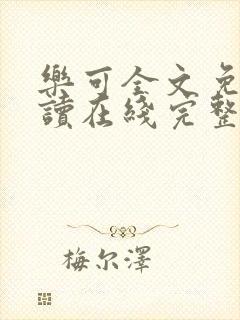 樂可全文免
讀在綫完整
梅尔澤